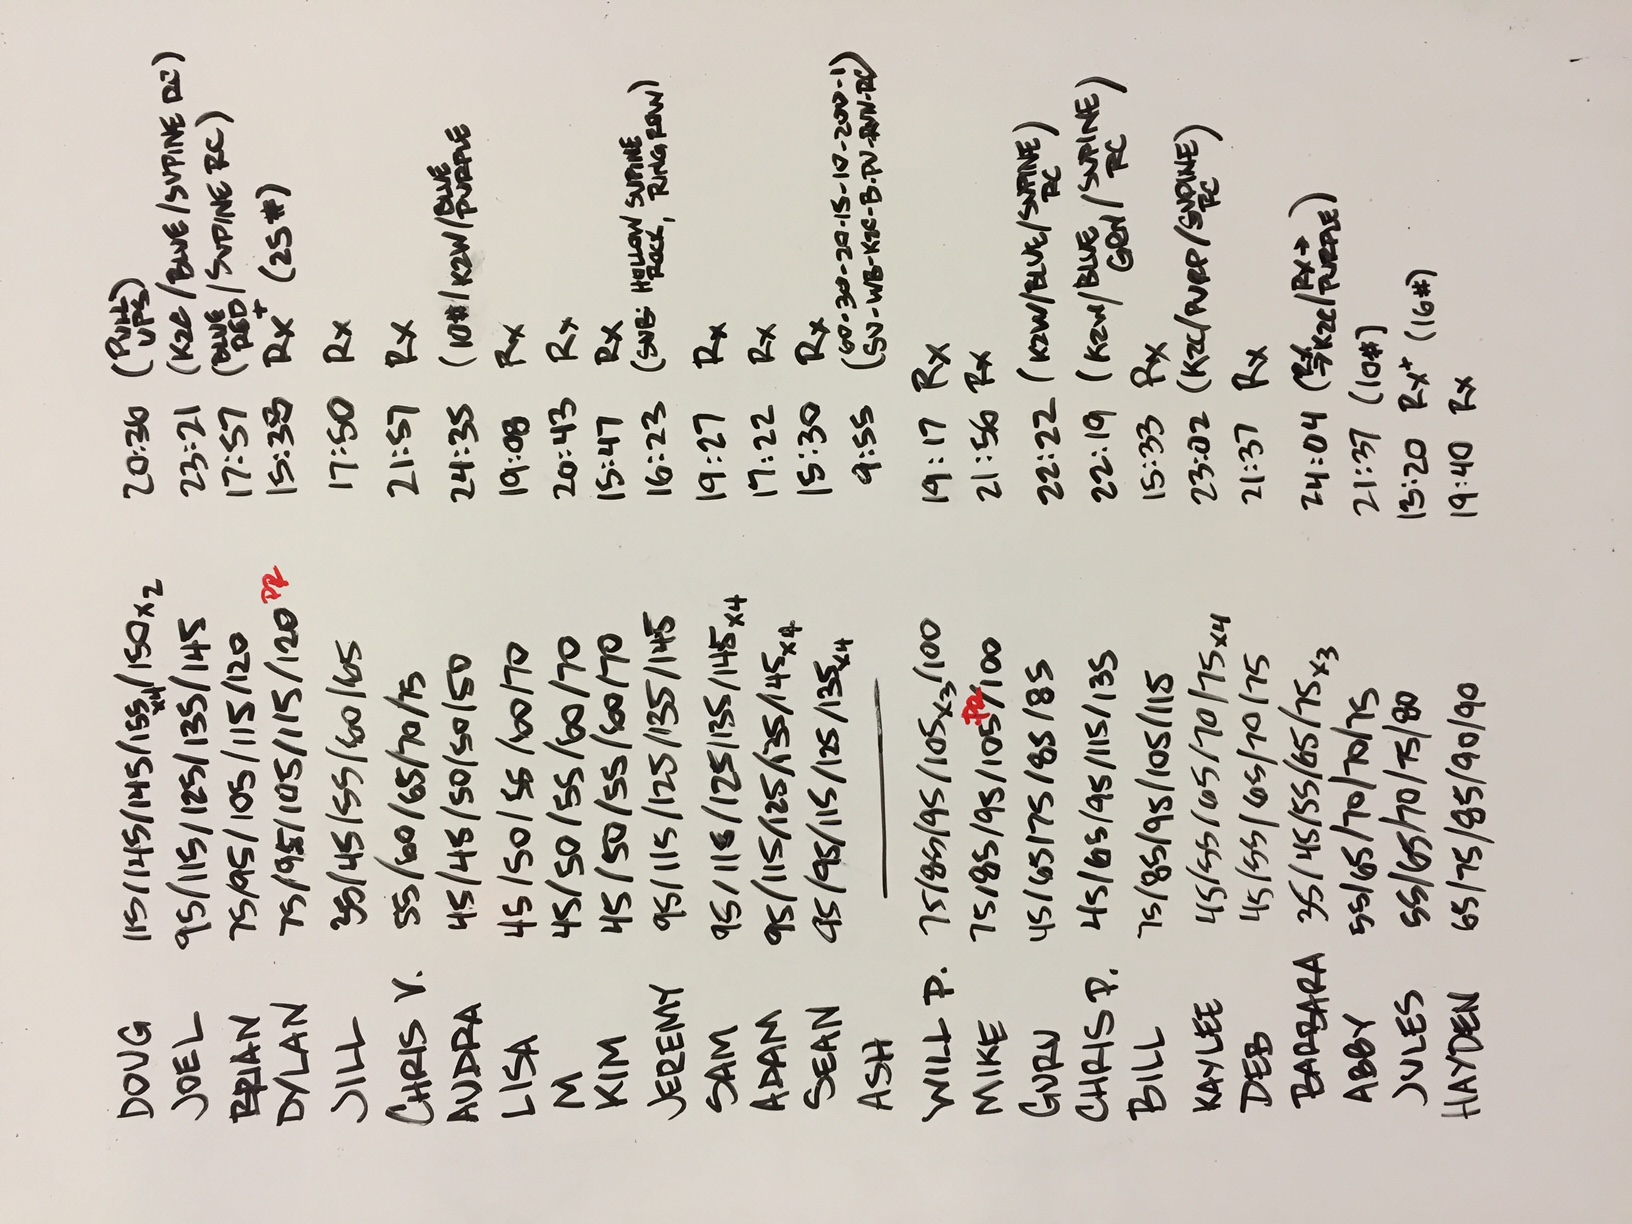 DOUG 115/145/145/155x4/150x2 20:36 (PULL UPS)
JOEL 95/115/125/135/145 23:21 (K2C/BLUE/SUPINE RC)
BRIAN 75/95/105/115/120 17:57 (BLUE RED/SUPINE RC)
DYLAN 75/95/105/115/120 PR 15:38 Rx+ (25#)
JILL 35/45/55/60/65 17:50 Rx
CHRIS V. 55/60/65/70/75 21:57 Rx
AUDRA 45/45/50/50/50 24:35 (10#/K2W/BLUE PURPLE
LISA 45/50/55/60/70 19:08 Rx
M 45/50/55/60/70 20:43 Rx
KIM 45/50/55/60/70 15:47 Rx
JEREMY 95/115/125/135/145 16:23 (SUB: HOLLOW ROCK, SUPINE RING ROW)
SAM 95/115/125/135/145x4 19:27 Rx
ADAM 95/115/125/135/145x4 17:22 Rx
SEAN 95/95/115/125/135x4 15:30 Rx
ASH — 9:55 (60-30-20-15-10-200-1)
(SU-WB-K2C-B-PU-RUN-RC
WILL P. 75/85/95/105x3/100 19:17 Rx
MIKE 75/85/95/105PR/100 21:56 Rx
GURV 45/65/75/85/85 22:22 (K2W/BLUE/SUPINE RC)
CHRIS P. 45/65/95/115/135 22:19 (K2W/BLUE GRN/SUPINE RC)
BILL 75/85/95/105/115 15:33 Rx
KAYLEE 45/55/65/70/75x4 23:02 (K2C/PURP/SUPINE RC)
DEB 45/55/65/70/75 21:37 Rx
BARBARA 35/45/55/65/75x3 24:04 (K2C/Rx→ PURPLE)
ABBY 55/65/70/70/75 21:37 (10#)
JULES 55/65/70/75/80 13:20 Rx+ (16#)
HAYDEN 65/75/85/90/90 19:40 Rx